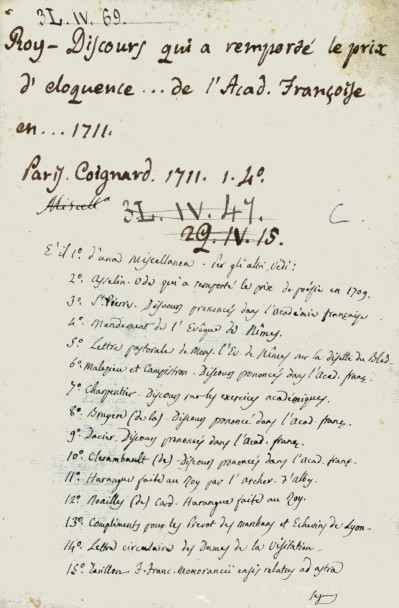 3L. IV. 69.
Roy - Discours qui a remporté le prix
d'eloquence ... de l'Acad. Françoise
en ... 1711.
Parij. Coignard. 1711. 1. 4º.
Miscellª
3L. IV. 47.
C.
29. IV. 15.
E' il 1º. d'una Miscellanea. Per gli altri, vedi:
2º. Asselin. Ode qui a remporté le prix de poésie en 1709.
3º St. Pierre. Discours prononcés dans l'académie française
4º. Mandement de l'Evêque de Nîmes.
5º Lettre pastorale de Mons. l'Ev. de Nîmes sur la disette du Bled.
6º Malezieu et Campistron. Discours prononcés dans l'Acad. franç.
7º Charpentier. Discours sur les exercices académiques.
8º. Bruyère (de la) Discours prononcé dans l'Acad. franç.
9º. Dacier. Discours prononcés dans l'Acad. franç.
10º. Clerambault (de) Discours prononcés dans l'Acad. franç.
11º. Harangue faite au Roy par l'Archev. d'Alby.
12º Noailles (de) Card. Harangue faite au Roy.
13º. Compliments pour les Prevot des marchans et Echevins de Lyon.
14º. Lettra circulaire des Dames de la Visitation.
15º Tarillon J. Franc. Memorancii ensis relatus ad astra